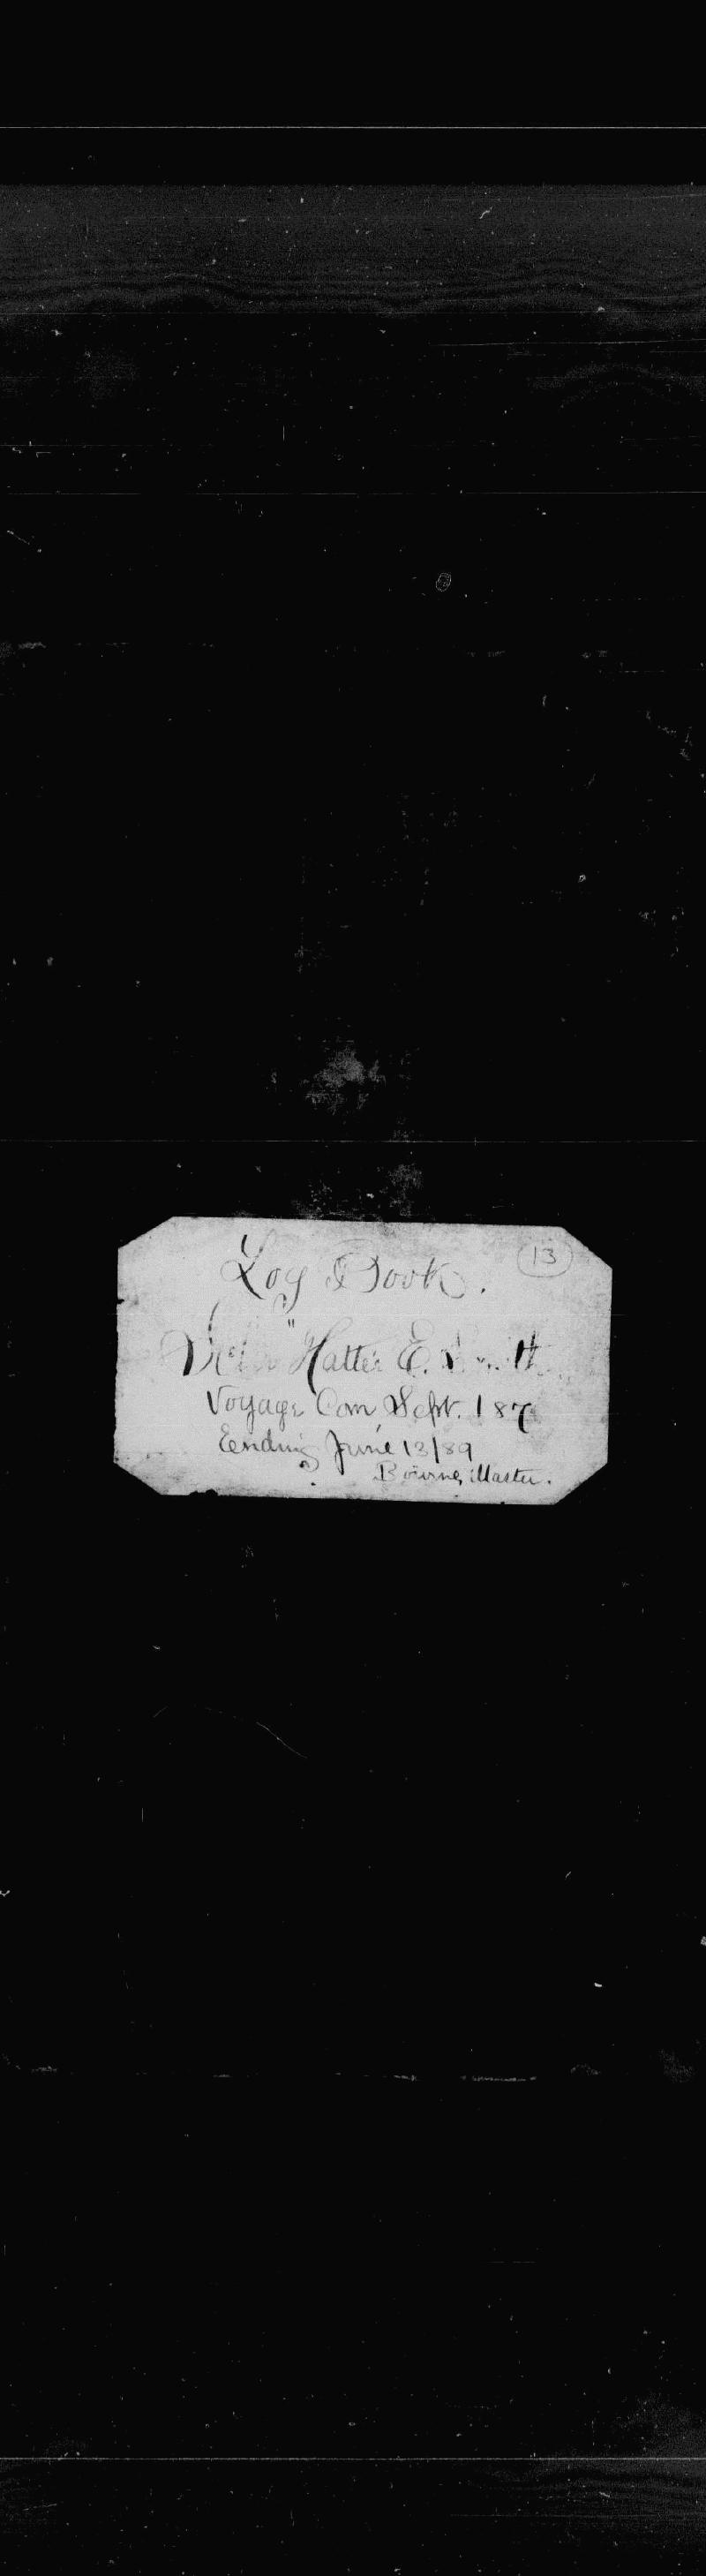 13
Log Book.
Schr "Hattie E. Smith
Voyage Com Sept. 187
Eending June 13/89
Bourne, Master.